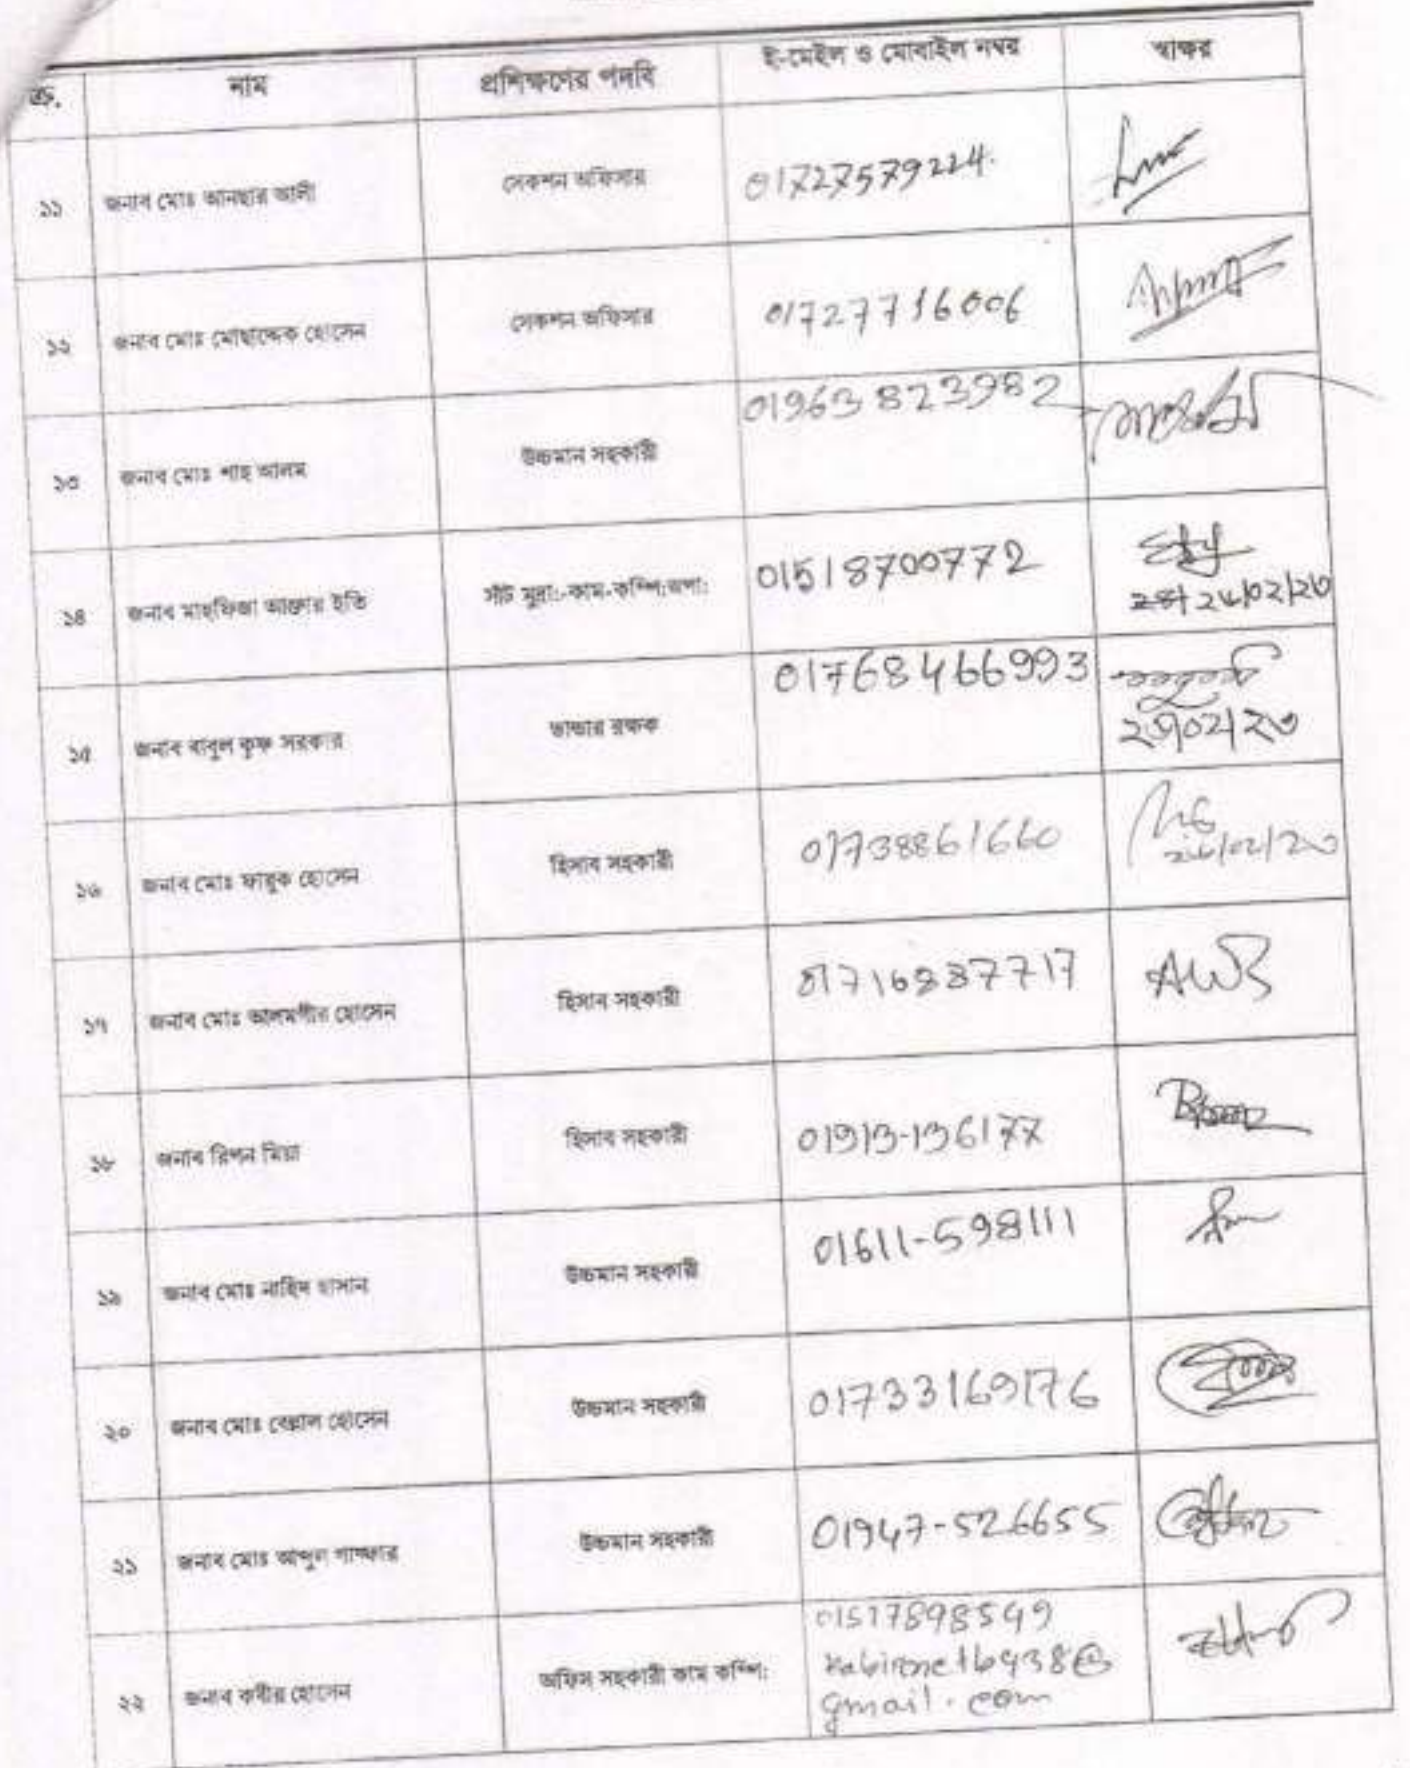 ক্র. নাম প্রশিক্ষণের পদবি ই-মেইল ও মোবাইল নম্বর স্বাক্ষর
১১ জনাব মোঃ আনছার আলী সেকশন অফিসার 01727579224.
১২ জনাব মোঃ মোছাদ্দেক হোসেন সেকশন অফিসার 01727716006
১৩ জনাব মোঃ শাহ আলম উচ্চমান সহকারী 01963823982
১৪ জনাব মাহফিজা আক্তার ইতি সাঁট মুদ্রা:-কাম-কম্পি:অপা: 01518700772
২৬/02/২৩
১৫ জনাব বাবুল কৃষ্ণ সরকার ভান্ডার রক্ষক 01768466993
০২/২৩
১৬ জনাব মোঃ ফারুক হোসেন হিসাব সহকারী 01738861660
১৭ জনাব মোঃ আলমগীর হোসেন হিসাব সহকারী 01716887717
১৮ জনাব রিপন মিয়া হিসাব সহকারী 01913-136177
১৯ জনাব মোঃ নাহিদ হাসান উচ্চমান সহকারী 01611-598111
২০ জনাব মোঃ বেল্লাল হোসেন উচ্চমান সহকারী 01733169176
২১ জনাব মোঃ আব্দুল গাফ্ফার উচ্চমান সহকারী 01947-526655
২২ জনাব কবীর হোসেন অফিস সহকারী কাম কম্পি: 01517898549
gmail.com